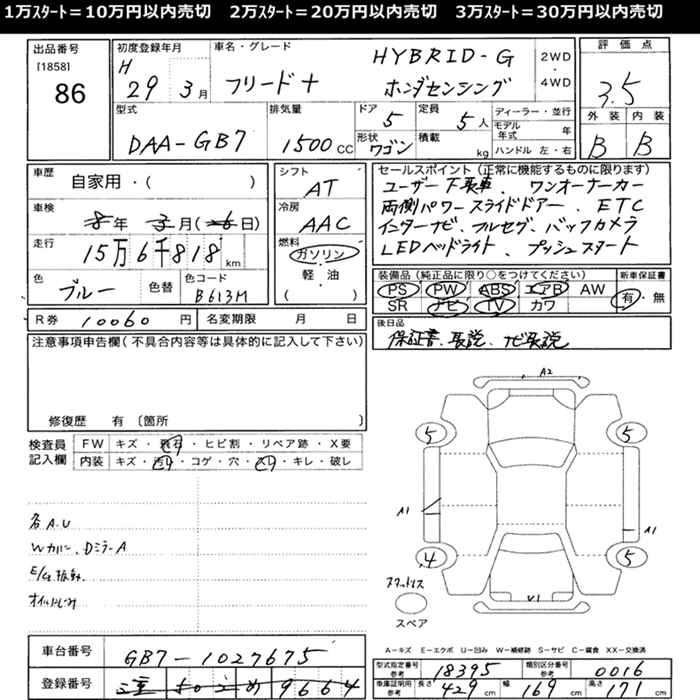 1万ｽﾀｰﾄ＝10万円以内売切　2万ｽﾀｰﾄ＝20万円以内売切　3万ｽﾀｰﾄ＝30万円以内売切
出品番号
[1858]
86
初度登録年月
H
29年 3月
車名・グレード
フリード＋
HYBRID-G
ホンダセンシング
2WD
・
4WD
評価点
3.5
外装 内装
B B
型式
DAA-GB7
排気量
1500 CC
ドア
5
定員
5人
形状
ワゴン
積載
kg
ディーラー・並行
モデル年式 年
ハンドル 左・右
車歴
自家用・( )
車検
8年 3月(26日)
走行
15万6千818km
色
ブルー
色替
色コード
B613M
シフト
AT
冷房
AAC
燃料
ガソリン
・
軽・油
( )
セールスポイント(正常に機能するものに限ります)
ユーザー下取車、ワンオーナーカー
両側パワースライドドアー、ETC
インターナビ、フルセグ、バックカメラ
LEDヘッドライト、プッシュスタート
装備品(純正品に限り○をつけてください)
PS PW ABS エアB AW
SR ナビ TV カワ
新車保証書
有・無
後日品
保証書、取説、ナビ取説
R券 10060円
名変期限 月 日
注意事項申告欄(不具合内容等は具体的に記入して下さい)
修復歴 有 〔箇所 〕
検査員
記入欄
FW キズ・飛石・ヒビ割・リペア跡・X要
内装 キズ・汚れ・コゲ・穴・スレ・キレ・破レ
各A.U
Wカバー、Dミラー A
E/G振動
オイルにじみ
A2
5
5
A1
A1
4
5
V1
スペア
A－キズ E－エクボ U－凹み W－補修跡 S－サビ C－腐食 XX－交換済
車台番号 GB7-1027675
登録番号 9664
型式指定番号
参考
18395
類別区分番号
参考
0016
車庫証明用
参考
長さ 429 cm 幅 169 cm 高さ 171 cm